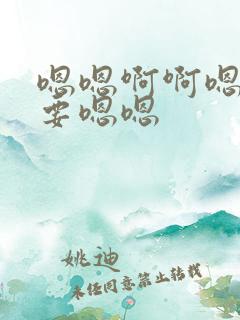 嗯嗯啊啊嗯
要嗯嗯
姚迪
未经同意禁止转载